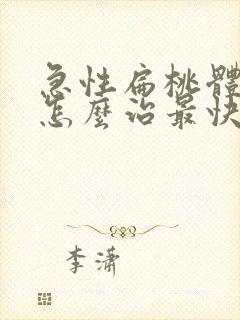 急性扁桃體
怎麼治最快
李潇